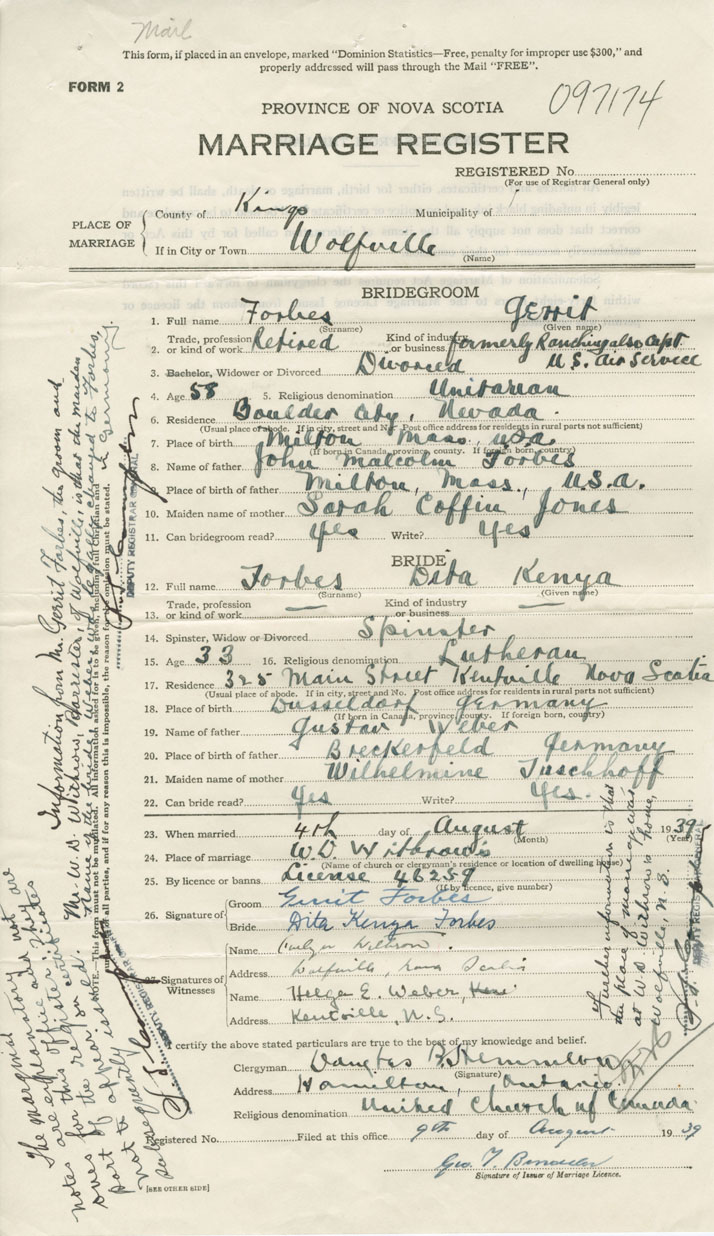 Mail
This form, if placed in an envelope, marked "Dominion Statistics—Free, penalty for improper use $300," and
properly addressed will pass through the Mail "FREE".
FORM 2
097174
PROVINCE OF NOVA SCOTIA
MARRIAGE REGISTER
REGISTERED No.
(For use of Registrar General only)
PLACE OF MARRIAGE
County of Kings Municipality of
If in City or Town Wolfville
(Name)
BRIDEGROOM
1. Full name Forbes Gerrit
(Surname) (Given name)
2. Trade, profession or kind of work Retired Kind of industry or business formerly Ranching also Capt
U.S. Air Service
3. Bachelor, Widower or Divorced Divorced
4. Age 58 5. Religious denomination Unitarian
6. Residence Boulder City, Nevada.
(Usual place of abode. If in city, street and No. Post office address for residents in rural parts not sufficient)
7. Place of birth Milton Mass, USA
(If born in Canada, province, county. If foreign born, country)
8. Name of father John Malcolm Forbes
9. Place of birth of father Milton, Mass., U.S.A.
10. Maiden name of mother Sarah Coffin Jones
11. Can bridegroom read? Yes Write? Yes
BRIDE
12. Full name Forbes Dita Kenya
(Surname) (Given name)
13. Trade, profession or kind of work — Kind of industry or business —
14. Spinster, Widow or Divorced Spinster
15. Age 33 16. Religious denomination Lutheran
17. Residence 325 Main Street Kentville Nova Scotia
(Usual place of abode. If in city, street and No. Post office address for residents in rural parts not sufficient)
18. Place of birth Dusseldorf Germany
(If born in Canada, province, county. If foreign born, country)
19. Name of father Gustav Weber
20. Place of birth of father Breckerfeld Germany
21. Maiden name of mother Wilhelmine Tuschhoff
22. Can bride read? Yes Write? Yes.
23. When married 4th day of August 1939
(Month) (Year)
24. Place of marriage W.D. Withrow's
(Name of church or clergyman's residence or location of dwelling house)
25. By licence or banns License 46259
(If by licence, give number)
26. Signature of Groom Gerrit Forbes
Bride Dita Kenya Forbes
27. Signatures of Witnesses
Name Withrow.
Address Wolfville, Nova Scotia
Name Helga E. Weber,
Address Kentville, N.S.
I certify the above stated particulars are true to the best of my knowledge and belief.
Clergyman Douglas
(Signature)
Address Hamilton, Ontario
Religious denomination United Church of Canada
Registered No. Filed at this office 9th day of August 1939
Geo. T.
Signature of Issuer of Marriage Licence.
[SEE OTHER SIDE]
Information from Mr. Gerrit Forbes, the groom and
Mr. W.D. Withrow, Barrister, of Wolfville, is that the maiden
name of the bride, Weber, was legally changed to Forbes,
in Germany.
NOTE.—This form must not be mutilated. All information asked for is to be given, including full Christian and
surnames of all parties, and if for any reason this is impossible, the reason for the omission must be stated.
DEPUTY REGISTRAR GENERAL
The marginal
notes on this register
are explanatory and
for the
DEPUTY REGISTRAR GENERAL
Further information is that
the place of marriage was
at W.D. Withrow's home,
Wolfville, N.S.
DEPUTY REGISTRAR GENERAL